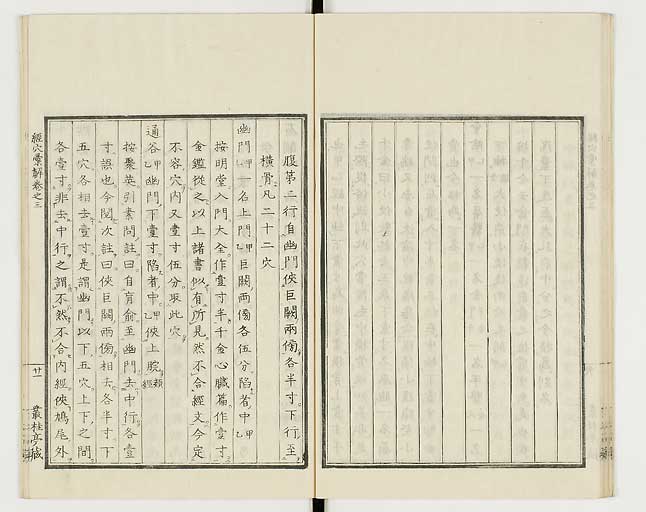 腹第二行自幽門俠巨闕兩傍各半寸下行至
橫骨凡二十二穴
幽門甲乙一名上門甲乙巨闕兩傍各伍分陷者中甲乙
按明堂入門大全作壹寸半千金心臓篇作壹寸
金鑑從之以上諸書似有所見然不合經文今定
不容穴內又壹寸伍分取此穴
通谷甲乙幽門下壹寸陷者中甲乙俠上脘類經
按聚英引素問註曰自肓俞至幽門去中行各壹
寸誤也今閱次註曰俠巨闕兩傍相去各半寸下
五穴各相去壹寸是謂幽門以下五穴上下之間
各壹寸非去中行之謂不然不合內經俠鳩尾外
經穴彙解卷之三
廿一
叢桂亭藏